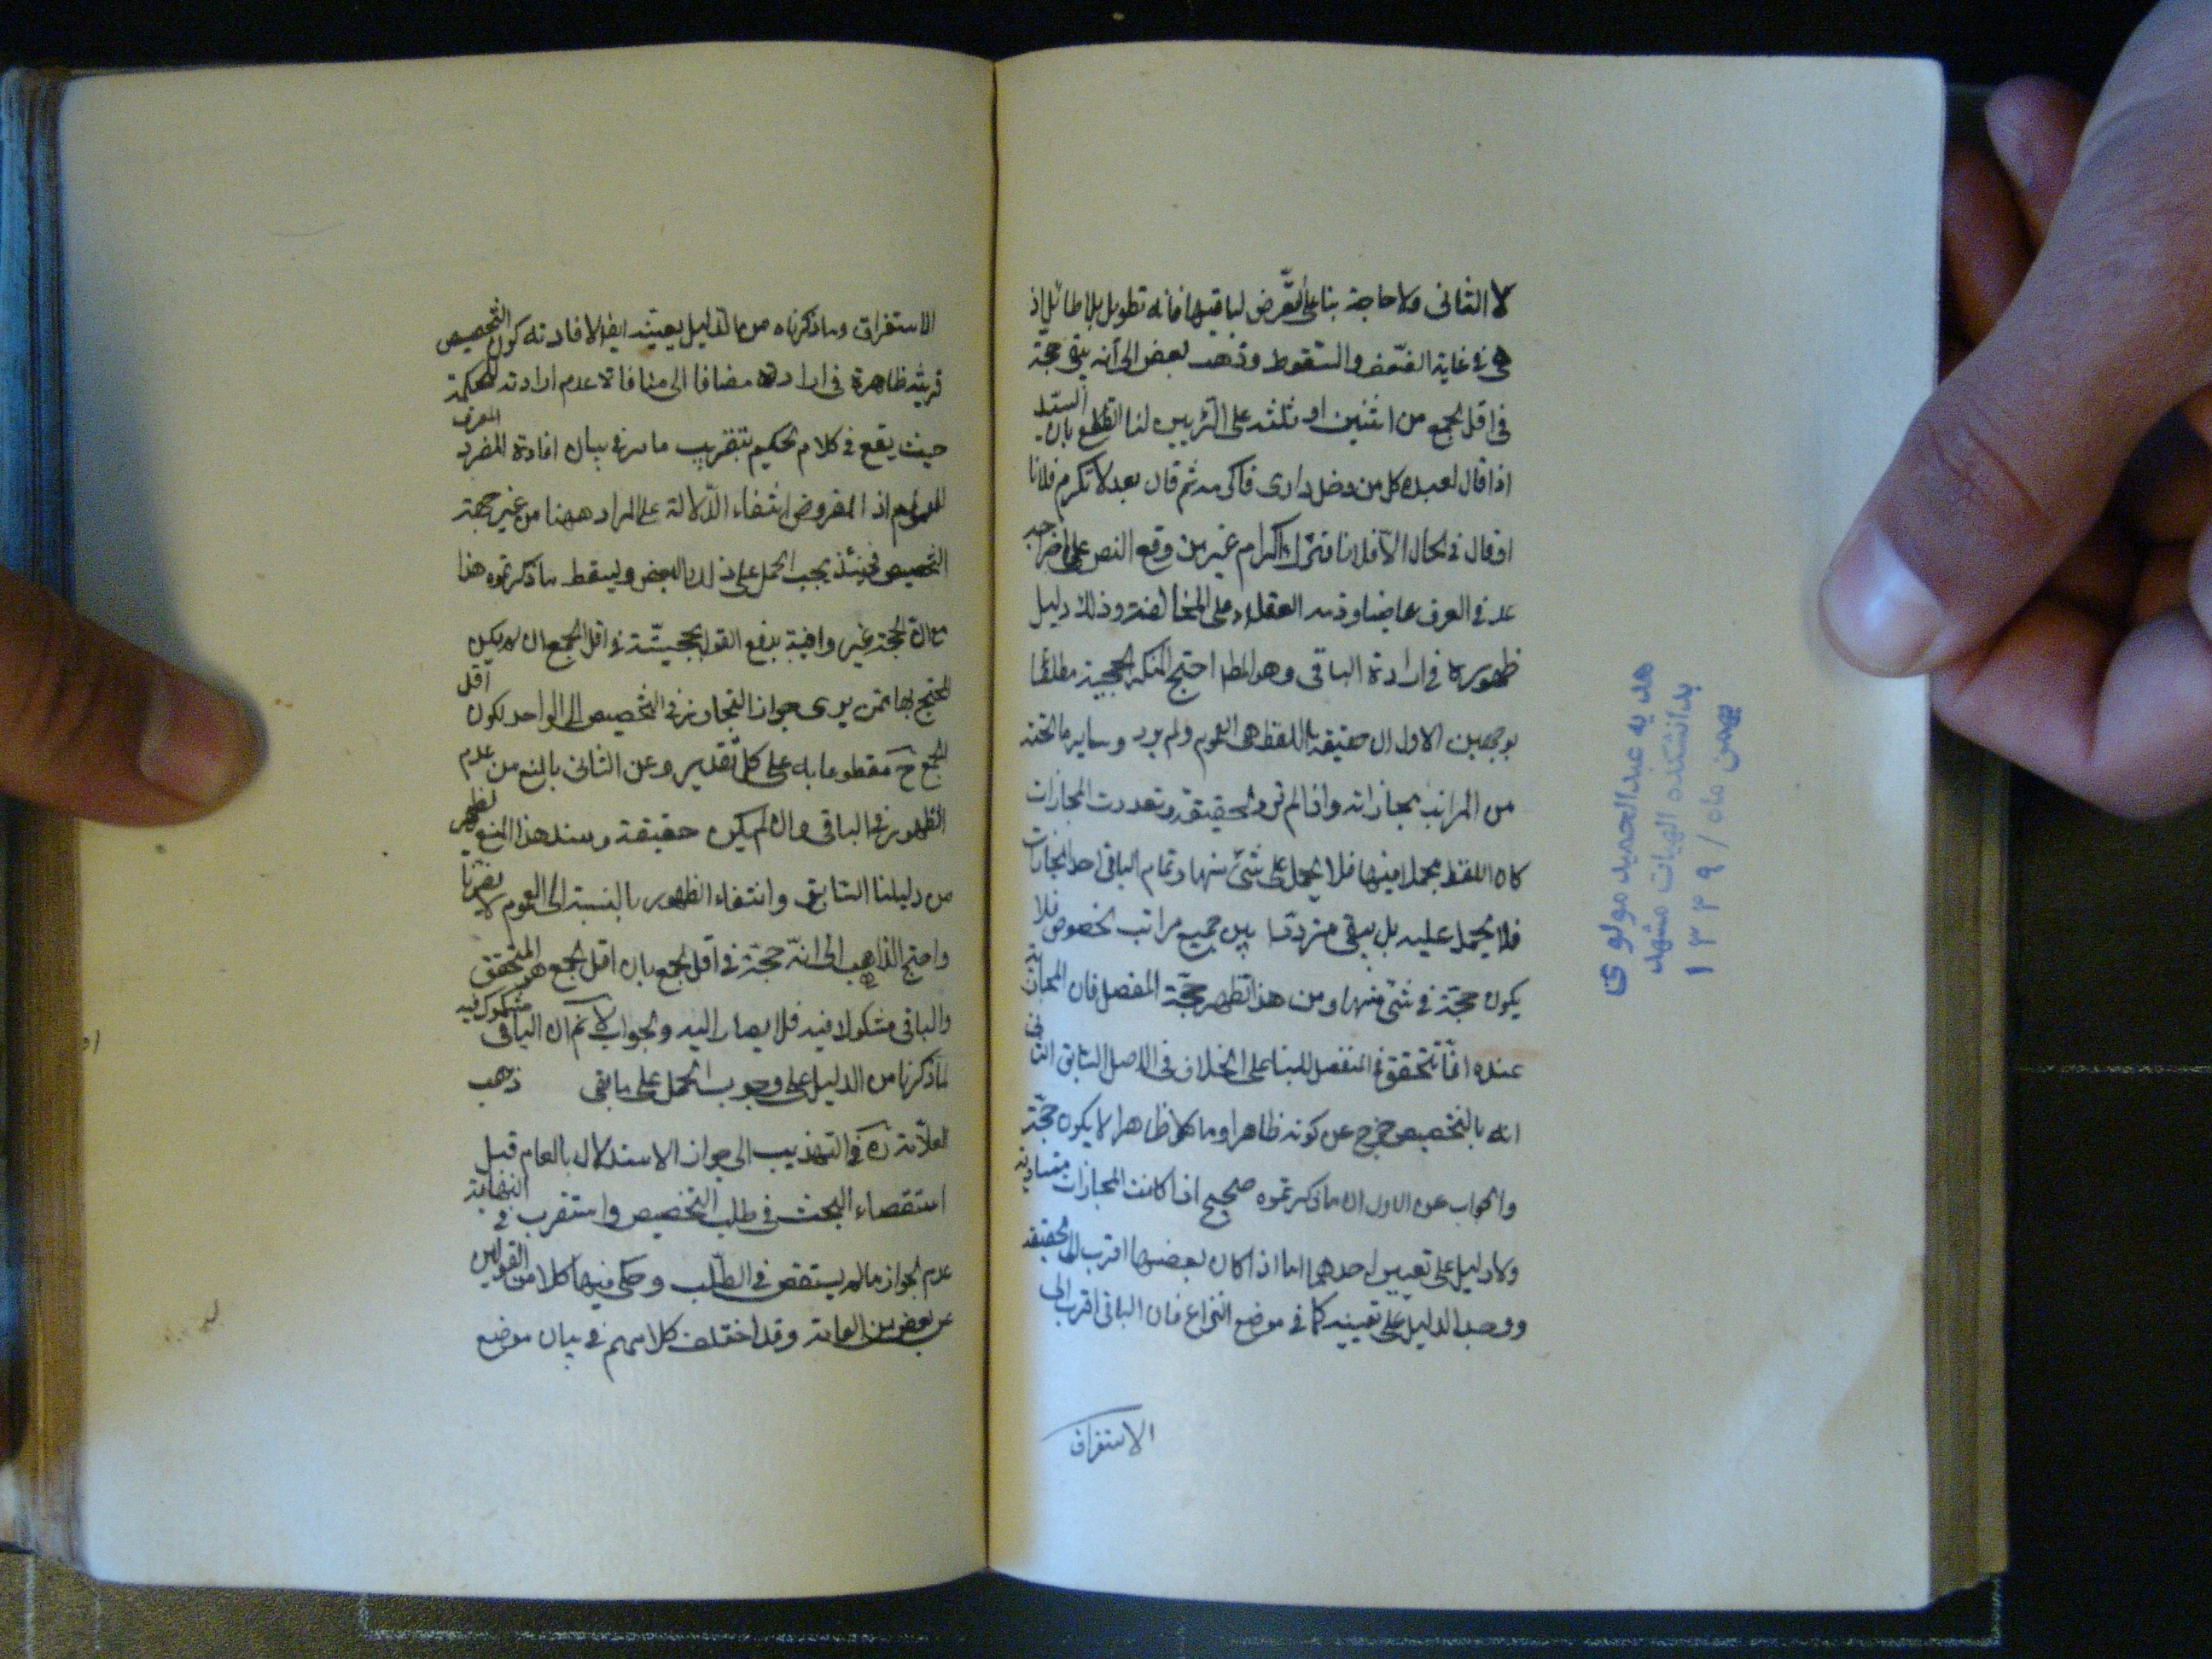 لا الثانى ولا حاجة بنا على التعرض لباقيها فانه تطويل بلا طائل اذ
هى فى غاية الضعف والسقوط وذهب بعض الى انه يبقى حجة
فى اقل الجمع من اثنين او ثلثه على الرايين لنا القطع بان السيد
اذا قال لعبده كل من دخل دارى فاكرمه ثم قال بعد لا تكرم فلانا
او قال فى الحال الا فلانا فترك اكرام غير من وقع النص على اخراجه
عد فى العرف عاصيا وذمه العقلاء على المخالفة وذلك دليل
ظهوره فى ارادة الباقى وهو المط احتج المنكر للحجية مطلقا
بوجهين الاول ان حقيقة اللفظ هى العموم ولم يرد وساير ما تحته
من المراتب مجازاته واذا لم ترد الحقيقة وتعددت المجازات
كان اللفظ مجملا فيها فلا يحمل على شئ منها وتمام الباقى احد المجازات
فلا يحمل عليه بل يبقى مترددا بين جميع مراتب الخصوص فلا
يكون حجة فى شئ منها ومن هذا تظهر حجة المفصل فان المجازية
عنده انما تتحقق فى المنفصل للبناء على الخلاف فى الاصل السابق الثانى
انه بالتخصيص خرج عن كونه ظاهرا وما لا ظاهرا لا يكون حجة
والجواب عن الاول ان ما ذكرتموه صحيح اذا كانت المجازات متساوية
ولا دليل على تعيين احدهما اما اذا كان بعضها اقرب الى الحقيقة
ووجد الدليل على تعيينه كما فى موضع النزاع فان الباقى اقرب الى
الاستغراق
هديه عبدالحميد مولوى
بدانشكده الهيات مشهد
بهمن ماه / ١٣٤٩
الاستغراق وما ذكرناه من الدليل يعينه ايضا لافادته كون التخصيص
قرينة ظاهرة فى ارادته مضافا الى منافاة عدم ارادته للحكمة
حيث يقع فى كلام الحكيم بتقريب ما مر فى بيان افادة المفرد المعرف
للعموم اذ المفروض انتفاء الدلالة على المراد ههنا من غير جهة
التخصيص فحينئذ يجب الحمل على ذلك البعض ويسقط ما ذكرتموه هذا
مع ان الحجة غير وافية بدفع القول بحجيته فى اقل الجمع ان لم يكن
المحتج بها ممن يرى جواز التجاوز فى التخصيص الى الواحد لكون اقل
الجمع ح مقطوعا به على كل تقدير وعن الثانى بالمنع من عدم
الظهور فى الباقى وان لم يكن حقيقة وسند هذا المنع يظهر
من دليلنا السابق وانتفاء الظهور بالنسبة الى العموم لا يضرنا
واحتج الذاهب الى انه حجة فى اقل الجمع بان اقل الجمع هو المتحقق
والباقى مشكوك فيه فلا يصار اليه والجواب لا نم ان الباقى مشكوك فيه
لما ذكرنا من الدليل على وجوب الحمل على ما بقى ذهب
العلامة ره فى التهذيب الى جواز الاستدلال بالعام قبل
استقصاء البحث فى طلب التخصيص واستقرب فى النهاية
عدم الجواز ما لم يستقص فى الطلب وحكى فيها كلا من القولين
عن بعض من العامة وقد اختلف كلامهم فى بيان موضع